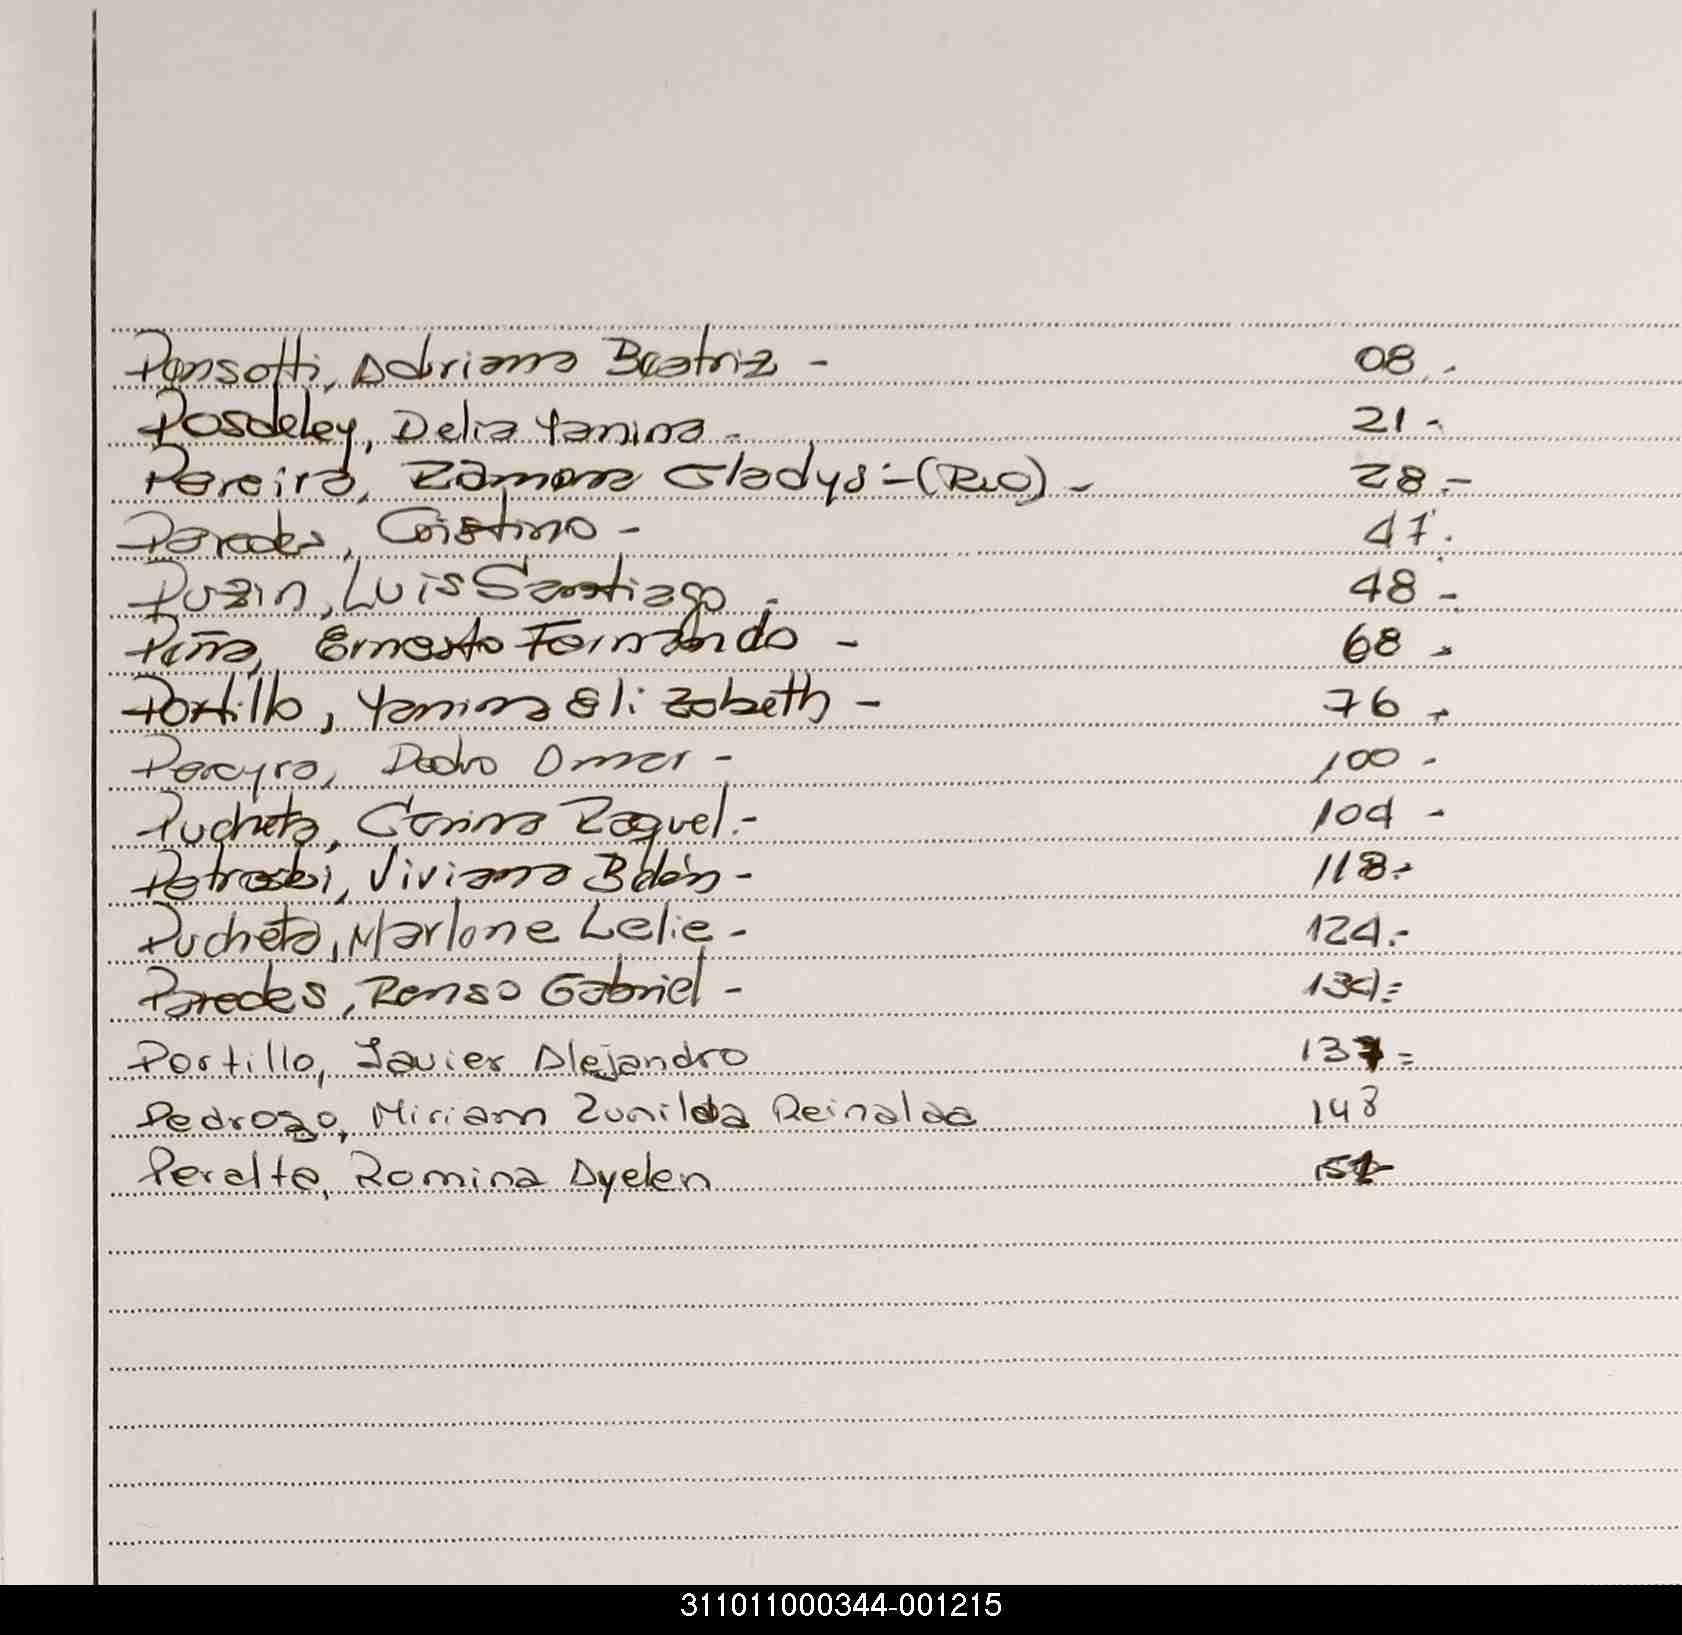 Ponsotti, Adriana Beatriz - 08.-
Posdeley, Delia Yanina. 21-
Pereira, Ramona Gladys.-(RIO)- 28.-
Paredes, Cristino - 47.
Puzin, Luis Santiago.- 48-
Piña, Ernesto Fernando - 68-
Portillo, Yanina Elizabeth - 76-
Pereyra, Pedro Omar - 100-
Pucheta, Carina Raquel.- 104-
Petroski, Viviana Belén - 118.-
Pucheta, Marlone Lelie - 124.-
Paredes, Renso Gabriel - 134.=
Portillo, Javier Alejandro 137=
Pedrozo, Miriam Zunilda Reinalda 148
Peralta, Romina Ayelen
311011000344-001215